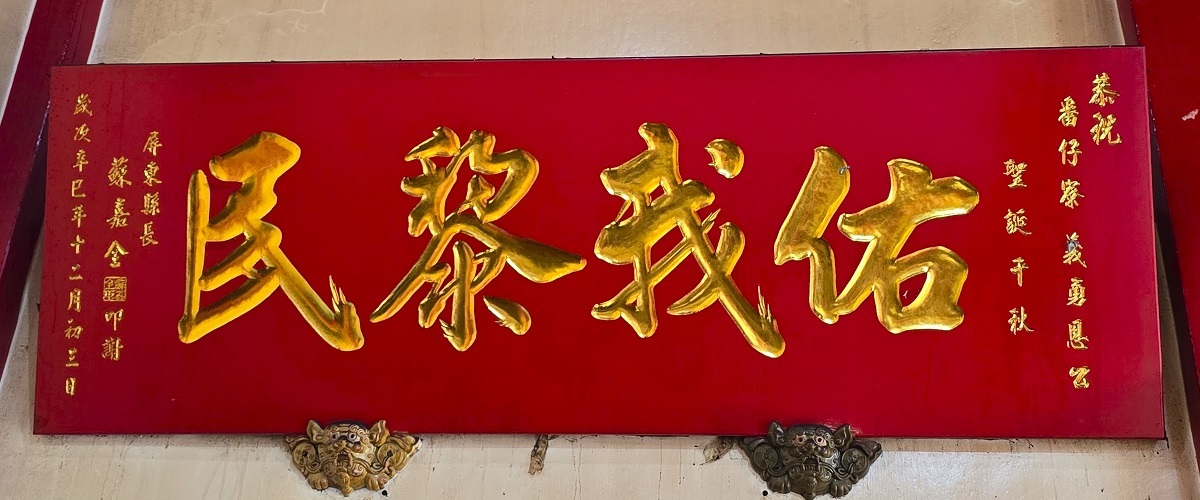 恭祝
番仔寮義勇恩公
聖誕千秋
佑我黎民
屏東縣長
蘇嘉全叩謝
歲次辛巳年十二月初三日